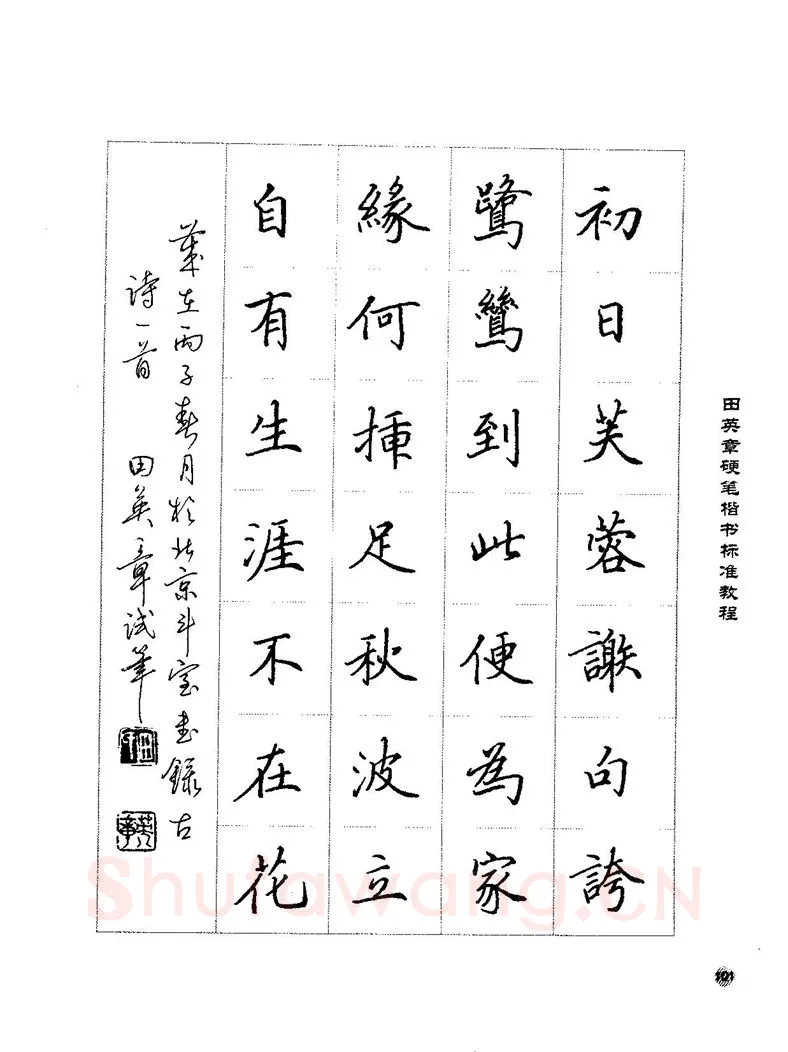 田英章硬笔楷书标准教程
初日芙蓉謝句誇
鷺鷥到此便為家
緣何挿足秋波立
自有生涯不在花
歲在丙子春月於北京斗室書錄古
詩一首 田英章試筆
英章
Shufawang.CN
101